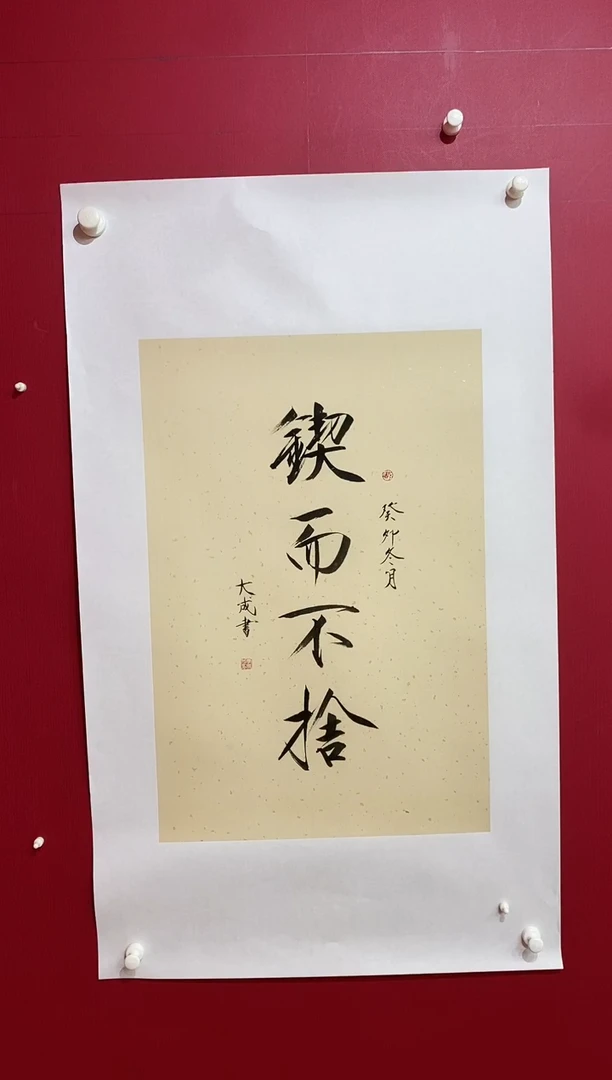 癸卯冬月
鍥而不捨
大成書